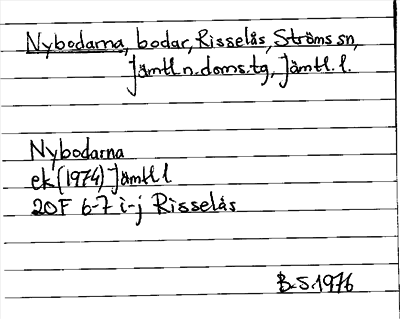 Nybodarna, bodar, Risselås, Ströms sn,
Jämtl. n. doms. tg, Jämtl. l.
Nybodarna
ek (1974) Jämtl l
20F 6-7 i-j Risselås
B.S.1976